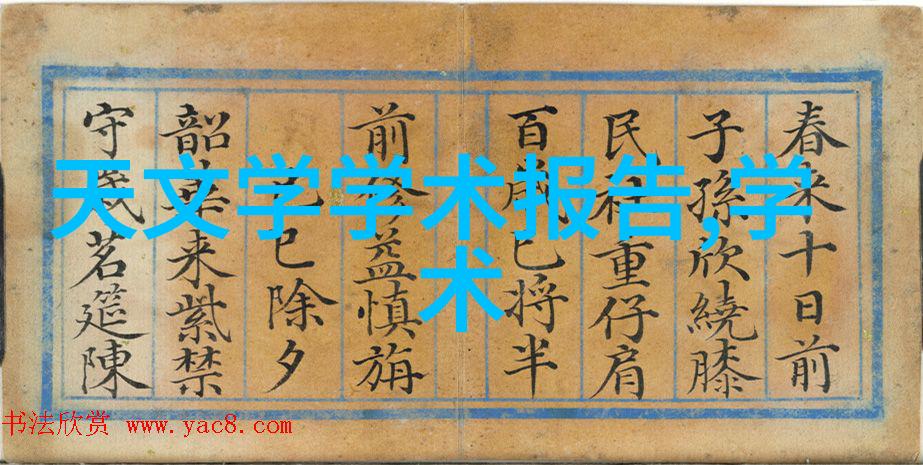 天文学学术报告,学
术
春来十日前
子孫欣繞膝
民社重仔肩
百歲已将半
前益慎旃
巳除夕
韶華来紫禁
守歲茗筵陳
书法欣赏 www.yac8.com